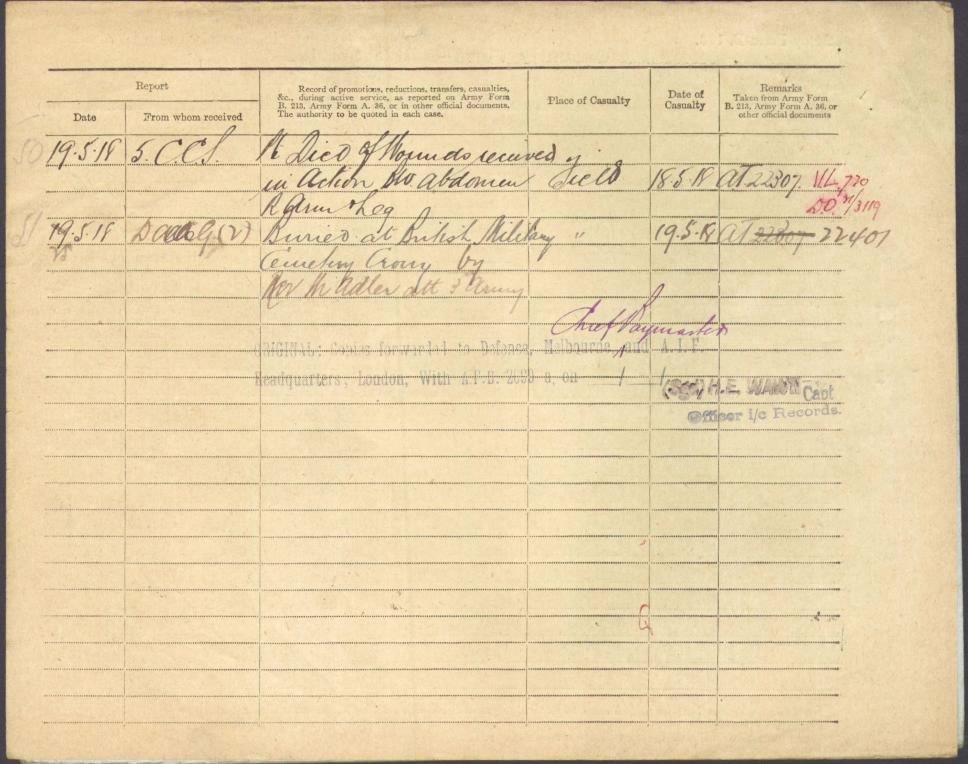 Report
Record of promotions, reductions, transfers, casualties,
&c., during active service, as reported on Army Form
B. 213, Army Form A. 36, or in other official documents.
The authority to be quoted in each case.
Place of Casualty
Date of
Casualty
Remarks
Taken from Army Form
B. 213, Army Form A. 36, or
other official documents
Date
From whom received
50 19.5.18 5. CCS. Died of Wounds received
in Action abdomen Field 18.5.18 AT 22307. 770
R Arm & Leg D.O. 3119
51 19.5.18 (2) Buried at British Military " 19.5.18 AT 22307 22401
Cemetery Crouy by
Rev M Adler att 3 Army
Chief Paymaster
ORIGINAL: Copies forwarded to Defence, Melbourne, and A.I.F.
Headquarters, London, With A.F.B. a, on / /
(Sgd) H.E. Capt
Officer i/c Records.